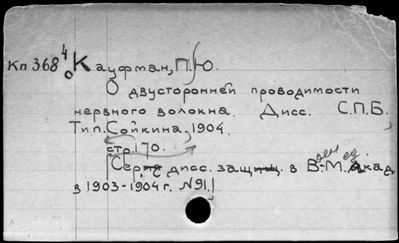 Кп 368 4° Кауфман, П.Ю.
О двусторонней проводимости
нервного волокна. Дисс. С.П.Б.,
Тип. Сойкина, 1904.
стр. 170.
[Серия дисс. защищ. в В.-М. акад.
в 1903-1904 г. №91.]